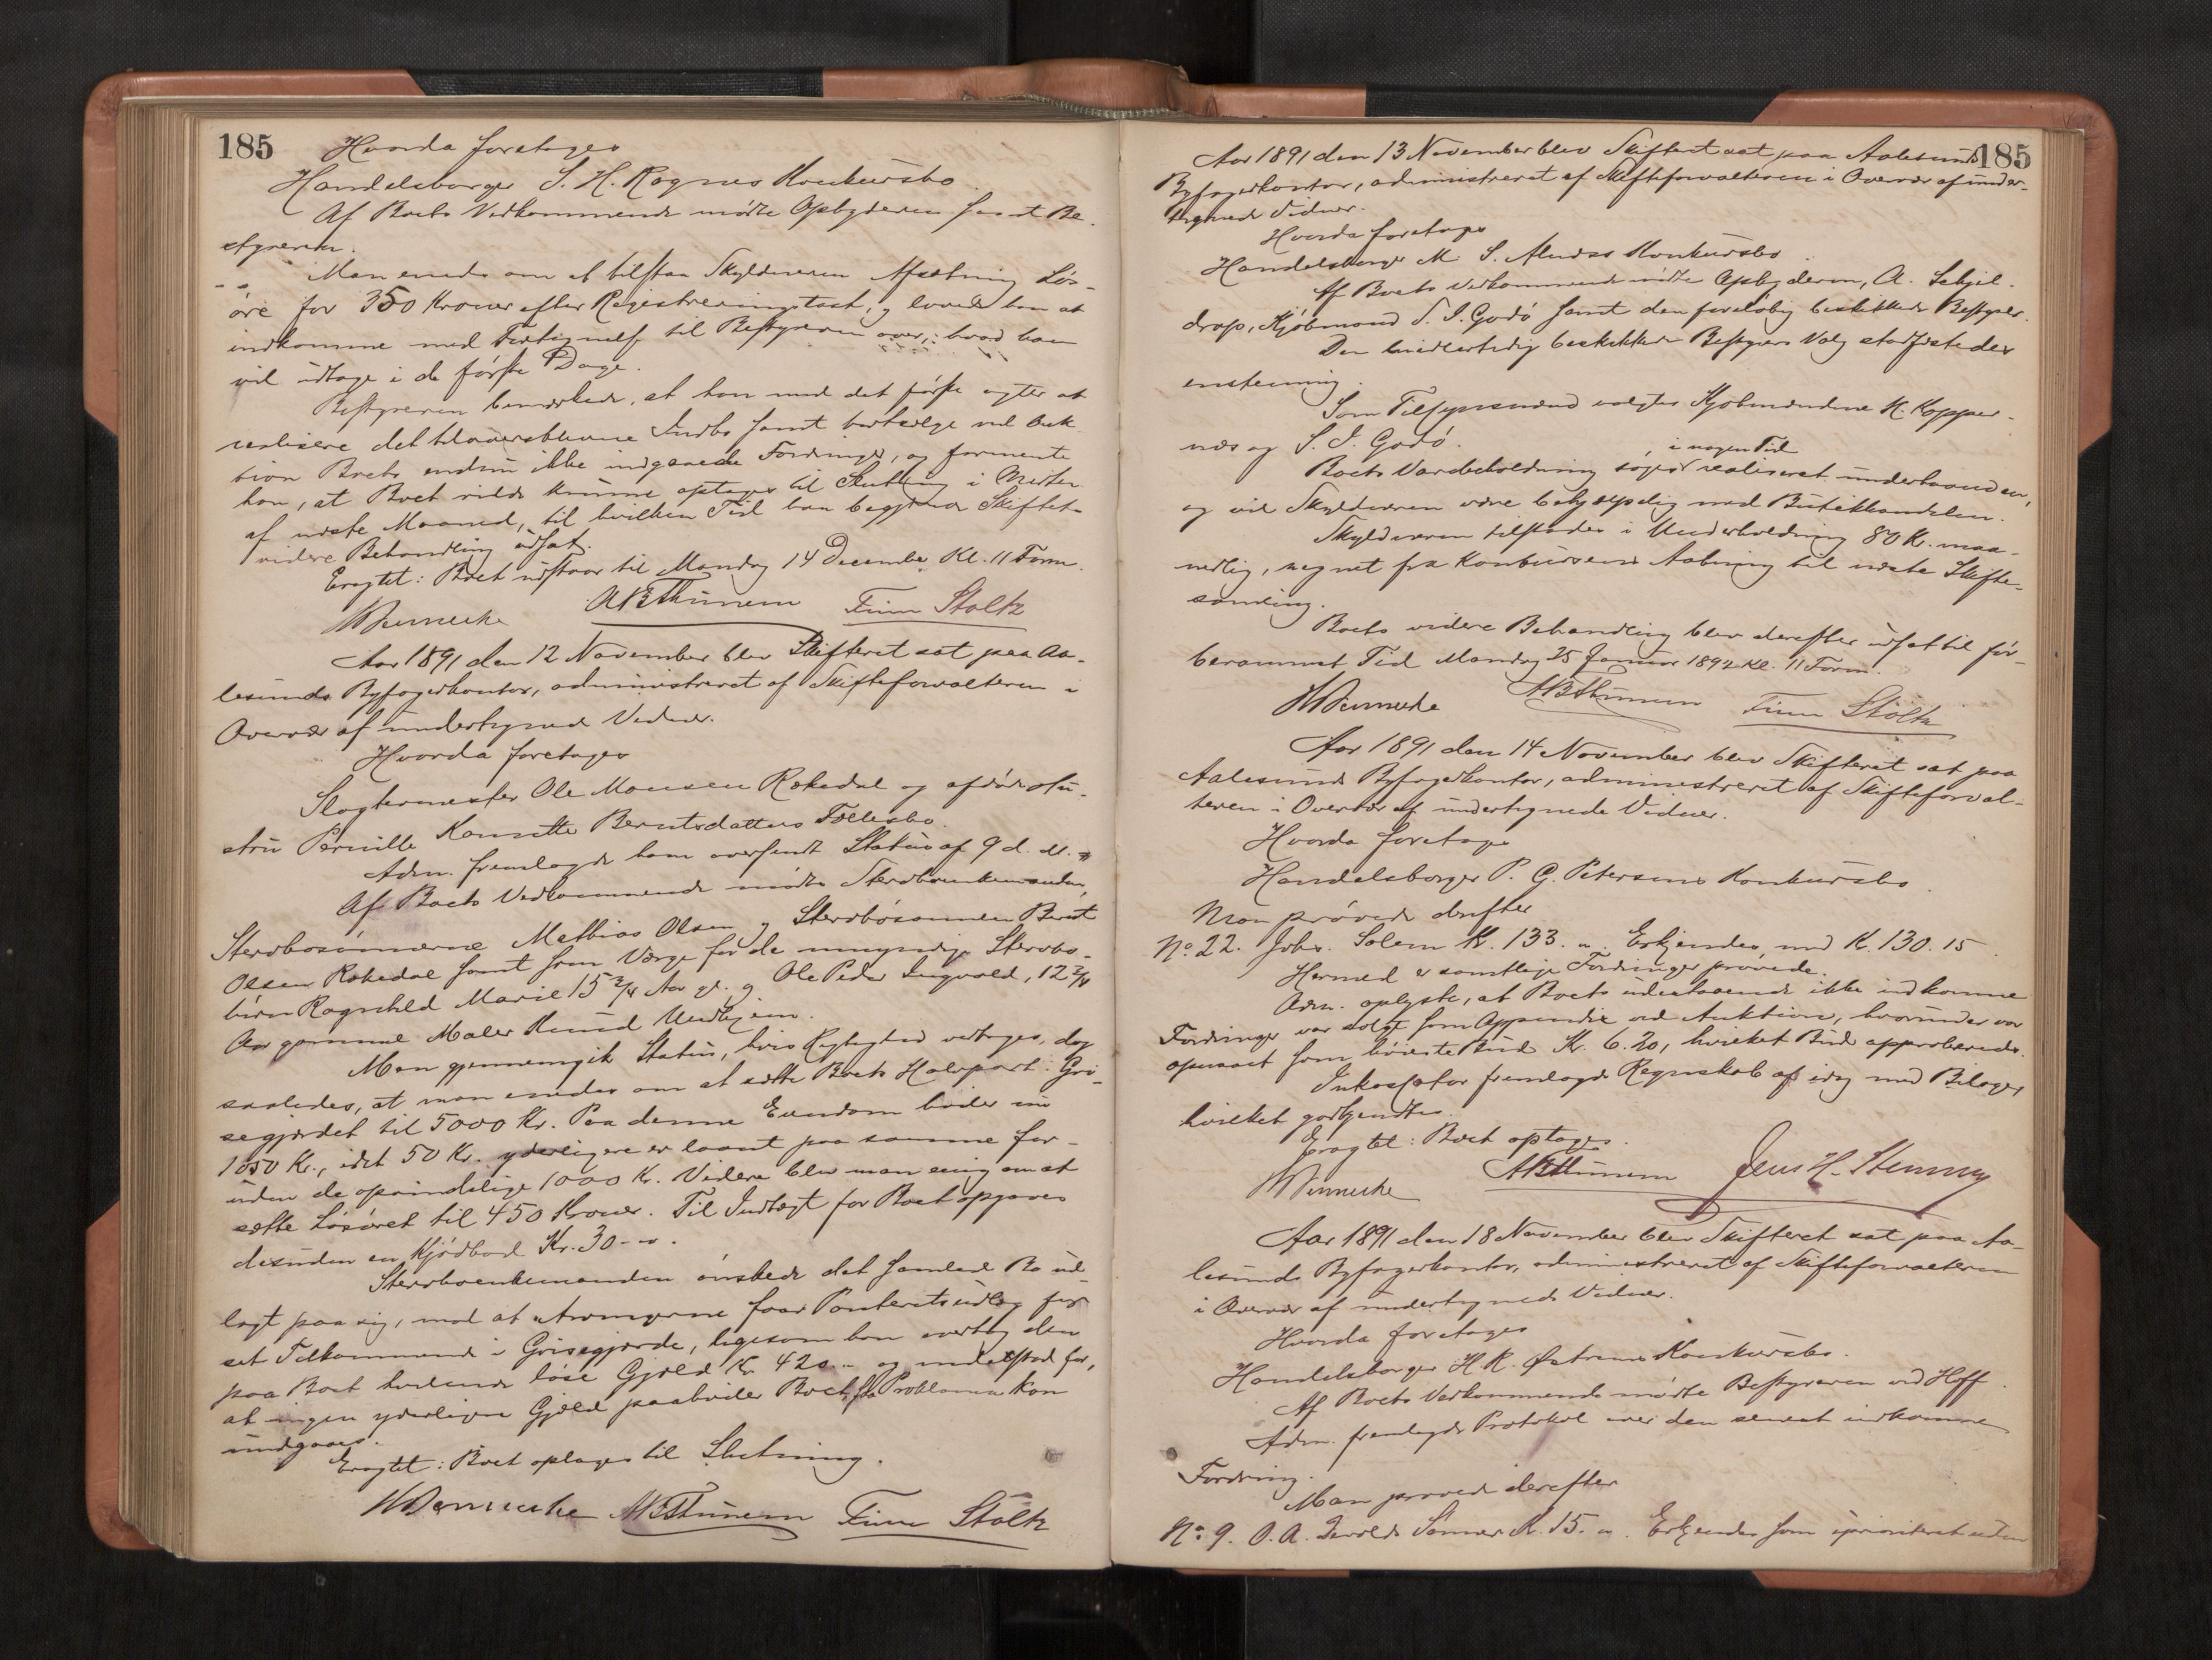 185
Hvorda foretoges
Handelsborger S. H. Rognes Konkursbo.
Af Boets Vedkommende mødte Opbyderen samt Be-
styreren.
Man enedes om at tilstaa Skyldneren Afsætning Løs-
øre for 350 Kroner efter Registreringstaxt, og lovede han at
indkomme med Fortegnelse til Bestyreren over, hvad han
vil udtage i de første Dage.
Bestyreren bemærkede, at han med det første agter at
realisere det tiloversblevne Indbo samt bortsælge ved Auk-
tion Boets endnu ikke indgaaede Fordringer, og formente
han, at Boet vilde kunne optages til Slutning i Midten
af næste Maaned, til hvilken Tid han begjærede Skiftets
videre Behandling udsat.
Eragtet: Boet udstaar til Mandag 14 December Kl. 11 Form.
ABThunem Finn Stoltz
Aar 1891 den 12 November blev Skifteret sat paa Aa-
lesunds Byfogedkontor, administreret af Skifteforvalteren i
Overvær af undertegnede Vidner.
Hvorda foretoges
Slagtermester Ole Monsen Rekedal og afdøde Hu-
stru Pernille Berntsdatters Fællesbo.
Adm. fremlagde ham oversendt Status af 9 d. M.
Af Boets Vedkommende mødte Stervboenkemanden,
Stervbosønnerne Mathias Olsen og Stervbosønnen Bernt
Olsen Rekedal samt som Værge for de umyndige Stervbo-
børn Ragnhild Marie 15 3/4 Aar gl. og Ole Peder Ingvald, 12 3/4
Aar gamle Maler Knud
Man gjennemgik Status, hvis Rigtighed vedtoges, dog
saaledes, at man enedes om at sætte Boets Halvpart i Gri-
segjærdet til 5000 Kr. Paa denne Eiendom hviler nu
1050 Kr., idet 50 Kr. yderligere er laant paa samme for-
uden de oprindelige 1000 Kr. Videre blev man enig om at
sætte Løsøret til 450 Kroner. Til Indtægt for Boet opgaves
desuden en Kjødbod Kr. 30.-
Stervboenkemanden ønskede det samlede Bo ud-
lagt paa sig, mod at Arvingerne faar Panteretsudlæg for
sit Tilkommende i Grisegjærde, ligesom han overtog den
paa Boet hvilende løse Gjæld Kr. 420.- og indestod for,
at ingen yderligere Gjæld paahviler Boet, saa Proklama kan
undgaaes.
Eragtet: Boet optages til Slutning.
ABThunem Finn Stoltz
185
Aar 1891 den 13 November blev Skifteret sat paa Aalesunds
Byfogedkontor, administreret af Skifteforvalteren i Overvær af under-
tegnede Vidner.
Hvorda foretoges
Handelsborger M. S. Konkursbo.
Af Boets Vedkommende mødte Opbyderen, A. Schjel-
drop, Kjøbmand S. I. Godø samt den foreløbig beskikkede Bestyrer.
Den midlertidig beskikkede Bestyrers Valg stadfæstedes
enstemmig.
Som Tilsynsmænd valgtes Kjøbmændene K. Kopper-
næs og S. I. Godø.
i nogen Tid
Boets Varebeholdning søges realiseret underhaanden,
og vil Skyldneren være behjælpelig med Butikhandelen.
Skyldneren tilstaaes i Underholdning 80 K. maa-
nedlig, regnet fra Konkursens Aabning til næste Skifte-
samling.
Boets videre Behandling blev derefter udsat til før-
berammet Tid Mandag 25 Januar 1892 Kl. 11 Form.
ABThunem Finn Stoltz
Aar 1891 den 14 November blev Skifteret sat paa
Aalesunds Byfogedkontor, administreret af Skifteforval-
teren i Overvær af undertegnede Vidner.
Hvorda foretoges
Handelsborger P. G. Petersens Konkursbo.
Man prøvede derefter
No. 22. Johs. Solem Kr. 133.- Erkjendes med K. 130.15
Hermed er samtlige Fordringer prøvede.
Adm. oplyste, at Boets udestaaende ikke indkomne
Fordringer var solgt som Appendix ved Auktion, hvorunder var
opnaaet som høieste Bud Kr. 6.20, hvilket Bud approberedes.
Inkassator fremlagde Regnskab af idag med Bilager,
hvilket godkjendtes.
Eragtet: Boet optages.
ABThunem Jens H.
Aar 1891 den 18 November blev Skifteret sat paa Aa-
lesunds Byfogedkontor, administreret af Skifteforvalteren
i Overvær af undertegnede Vidner.
Hvorda foretoges
Handelsborger H. K. Østrems Konkursbo.
Af Boets Vedkommende mødte Bestyreren ved Hoff.
Adm. fremlagde Protokol over den senest indkomne
Fordring.
Man prøvede derefter
No. 9. O. A. Devolds Sønner K. 15.- Erkjendes som uprioriteret uden